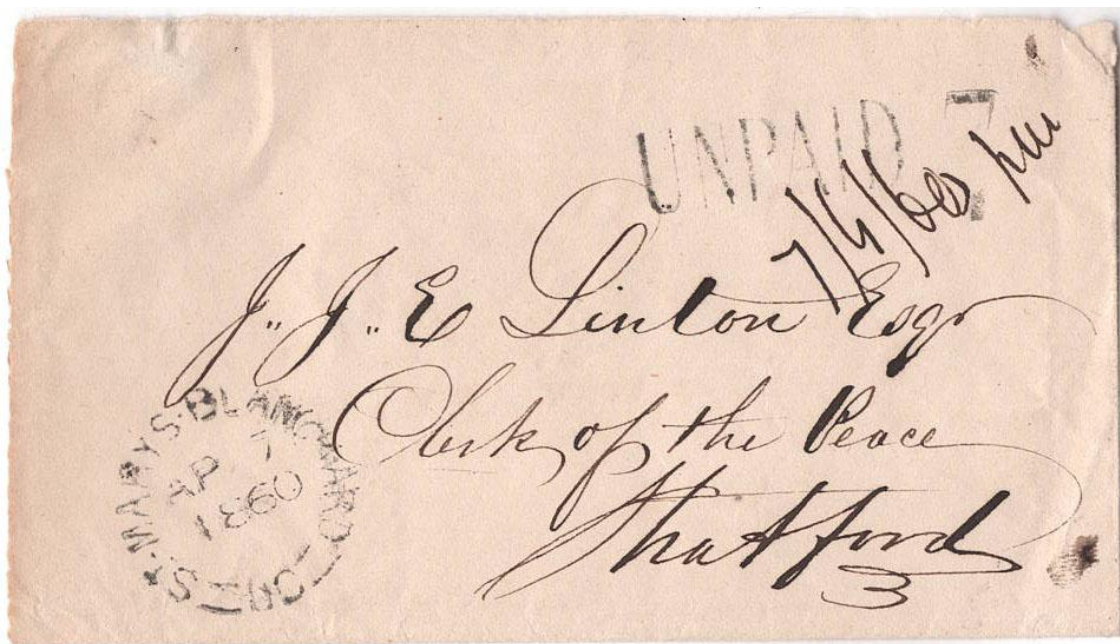 UNPAID 7
7/4/60 pm
J. J. E Linton Esqr
Clerk of the Peace
Stratford
3
ST. MARYS-BLANCHARD
AP 7
1860